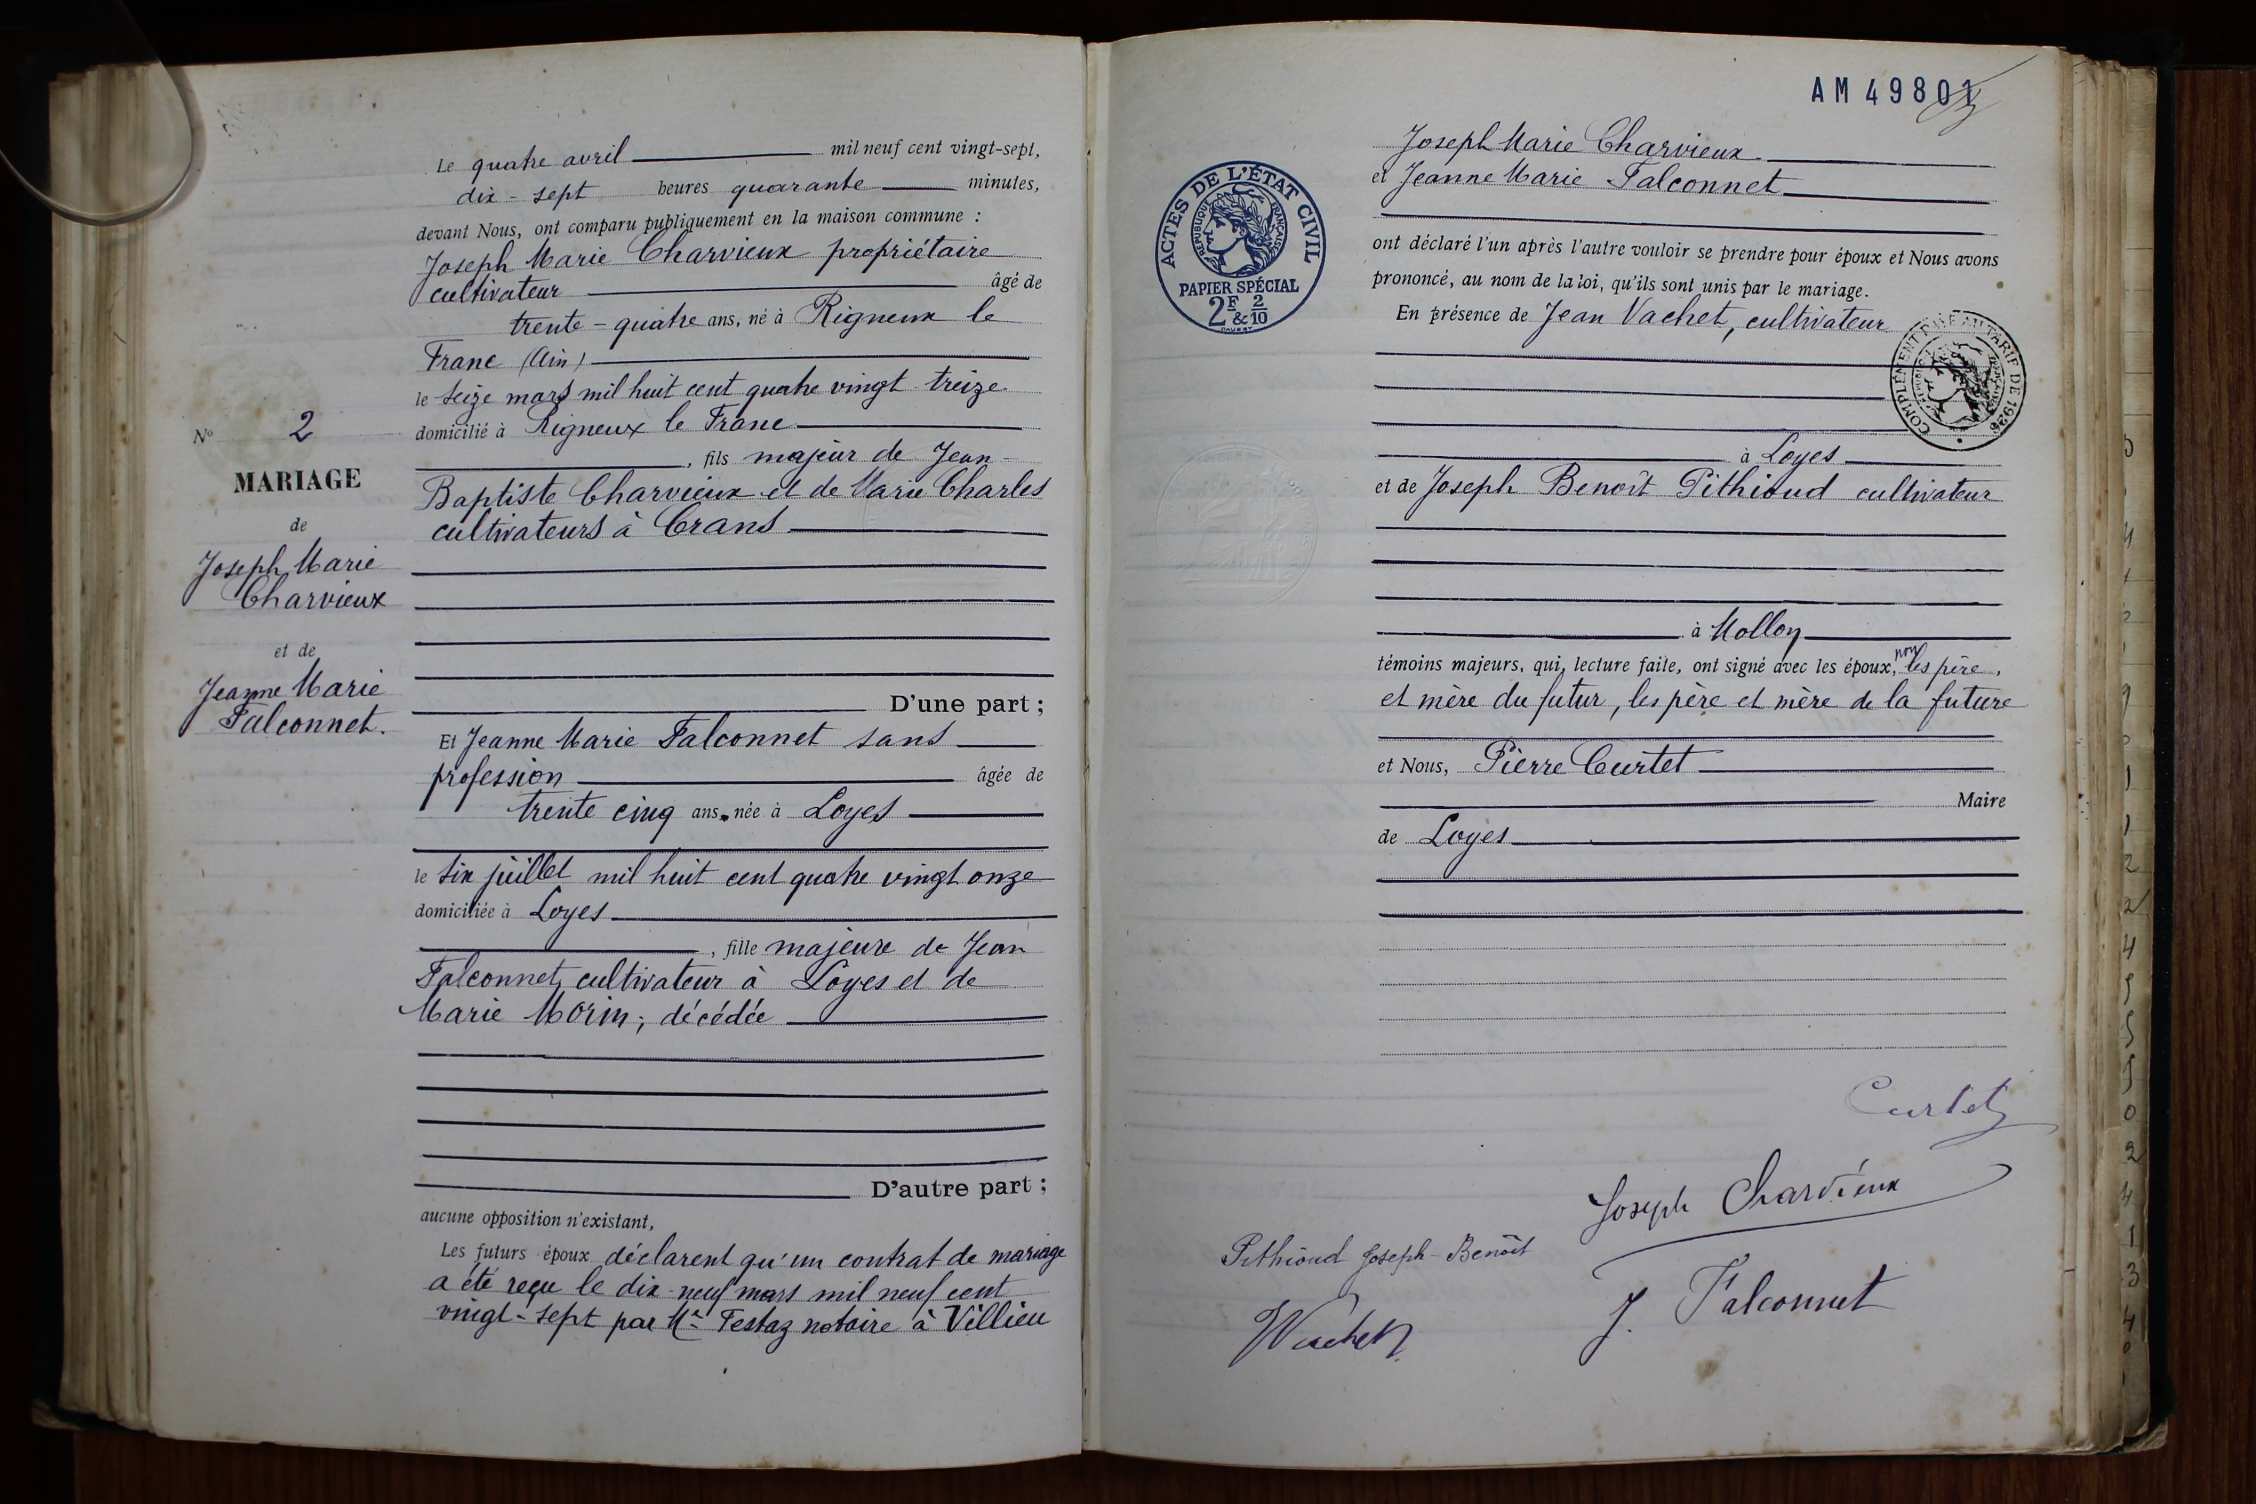 Le quatre avril mil neuf cent vingt-sept,
dix-sept heures quarante minutes,
devant Nous, ont comparu publiquement en la maison commune :
Joseph Marie Charvieux propriétaire
cultivateur âgé de
trente-quatre ans, né à Rigneux le
Franc (Ain)
le seize mars mil huit cent quatre vingt treize
domicilié à Rigneux le Franc
, fils majeur de Jean-
Baptiste Charvieux et de Marie Charles
cultivateurs à Crans
D'une part ;
Et Jeanne Marie Falconnet sans
profession âgée de
trente cinq ans, née à Loyes
le six juillet mil huit cent quatre vingt onze
domiciliée à Loyes
, fille majeure de Jean
Falconnet, cultivateur à Loyes et de
Marie Morin, décédée
D'autre part ;
aucune opposition n'existant,
Les futurs époux déclarent qu'un contrat de mariage
a été reçu le dix-neuf mars mil neuf cent
vingt-sept par Me Festaz notaire à Villieu
No 2
MARIAGE
de
Joseph Marie
Charvieux
et de
Jeanne Marie
Falconnet.
AM 49801
ACTES DE L'ÉTAT CIVIL
RÉPUBLIQUE FRANÇAISE
PAPIER SPÉCIAL
2F & 2/10
Joseph Marie Charvieux
et Jeanne Marie Falconnet
ont déclaré l'un après l'autre vouloir se prendre pour époux et Nous avons
prononcé, au nom de la loi, qu'ils sont unis par le mariage.
En présence de Jean Vachet, cultivateur
COMPLÉMENT DÛ AU TARIF DE 1926
à Loyes
et de Joseph Benoît Pithioud cultivateur
à Mollon
témoins majeurs, qui, lecture faite, ont signé avec les époux, non les père,
et mère du futur, les père et mère de la future
et Nous, Pierre Curtet
Maire
de Loyes
Curtet
Joseph Charvieux
Pithioud Joseph-Benoît
J. Falconnet
Vachet